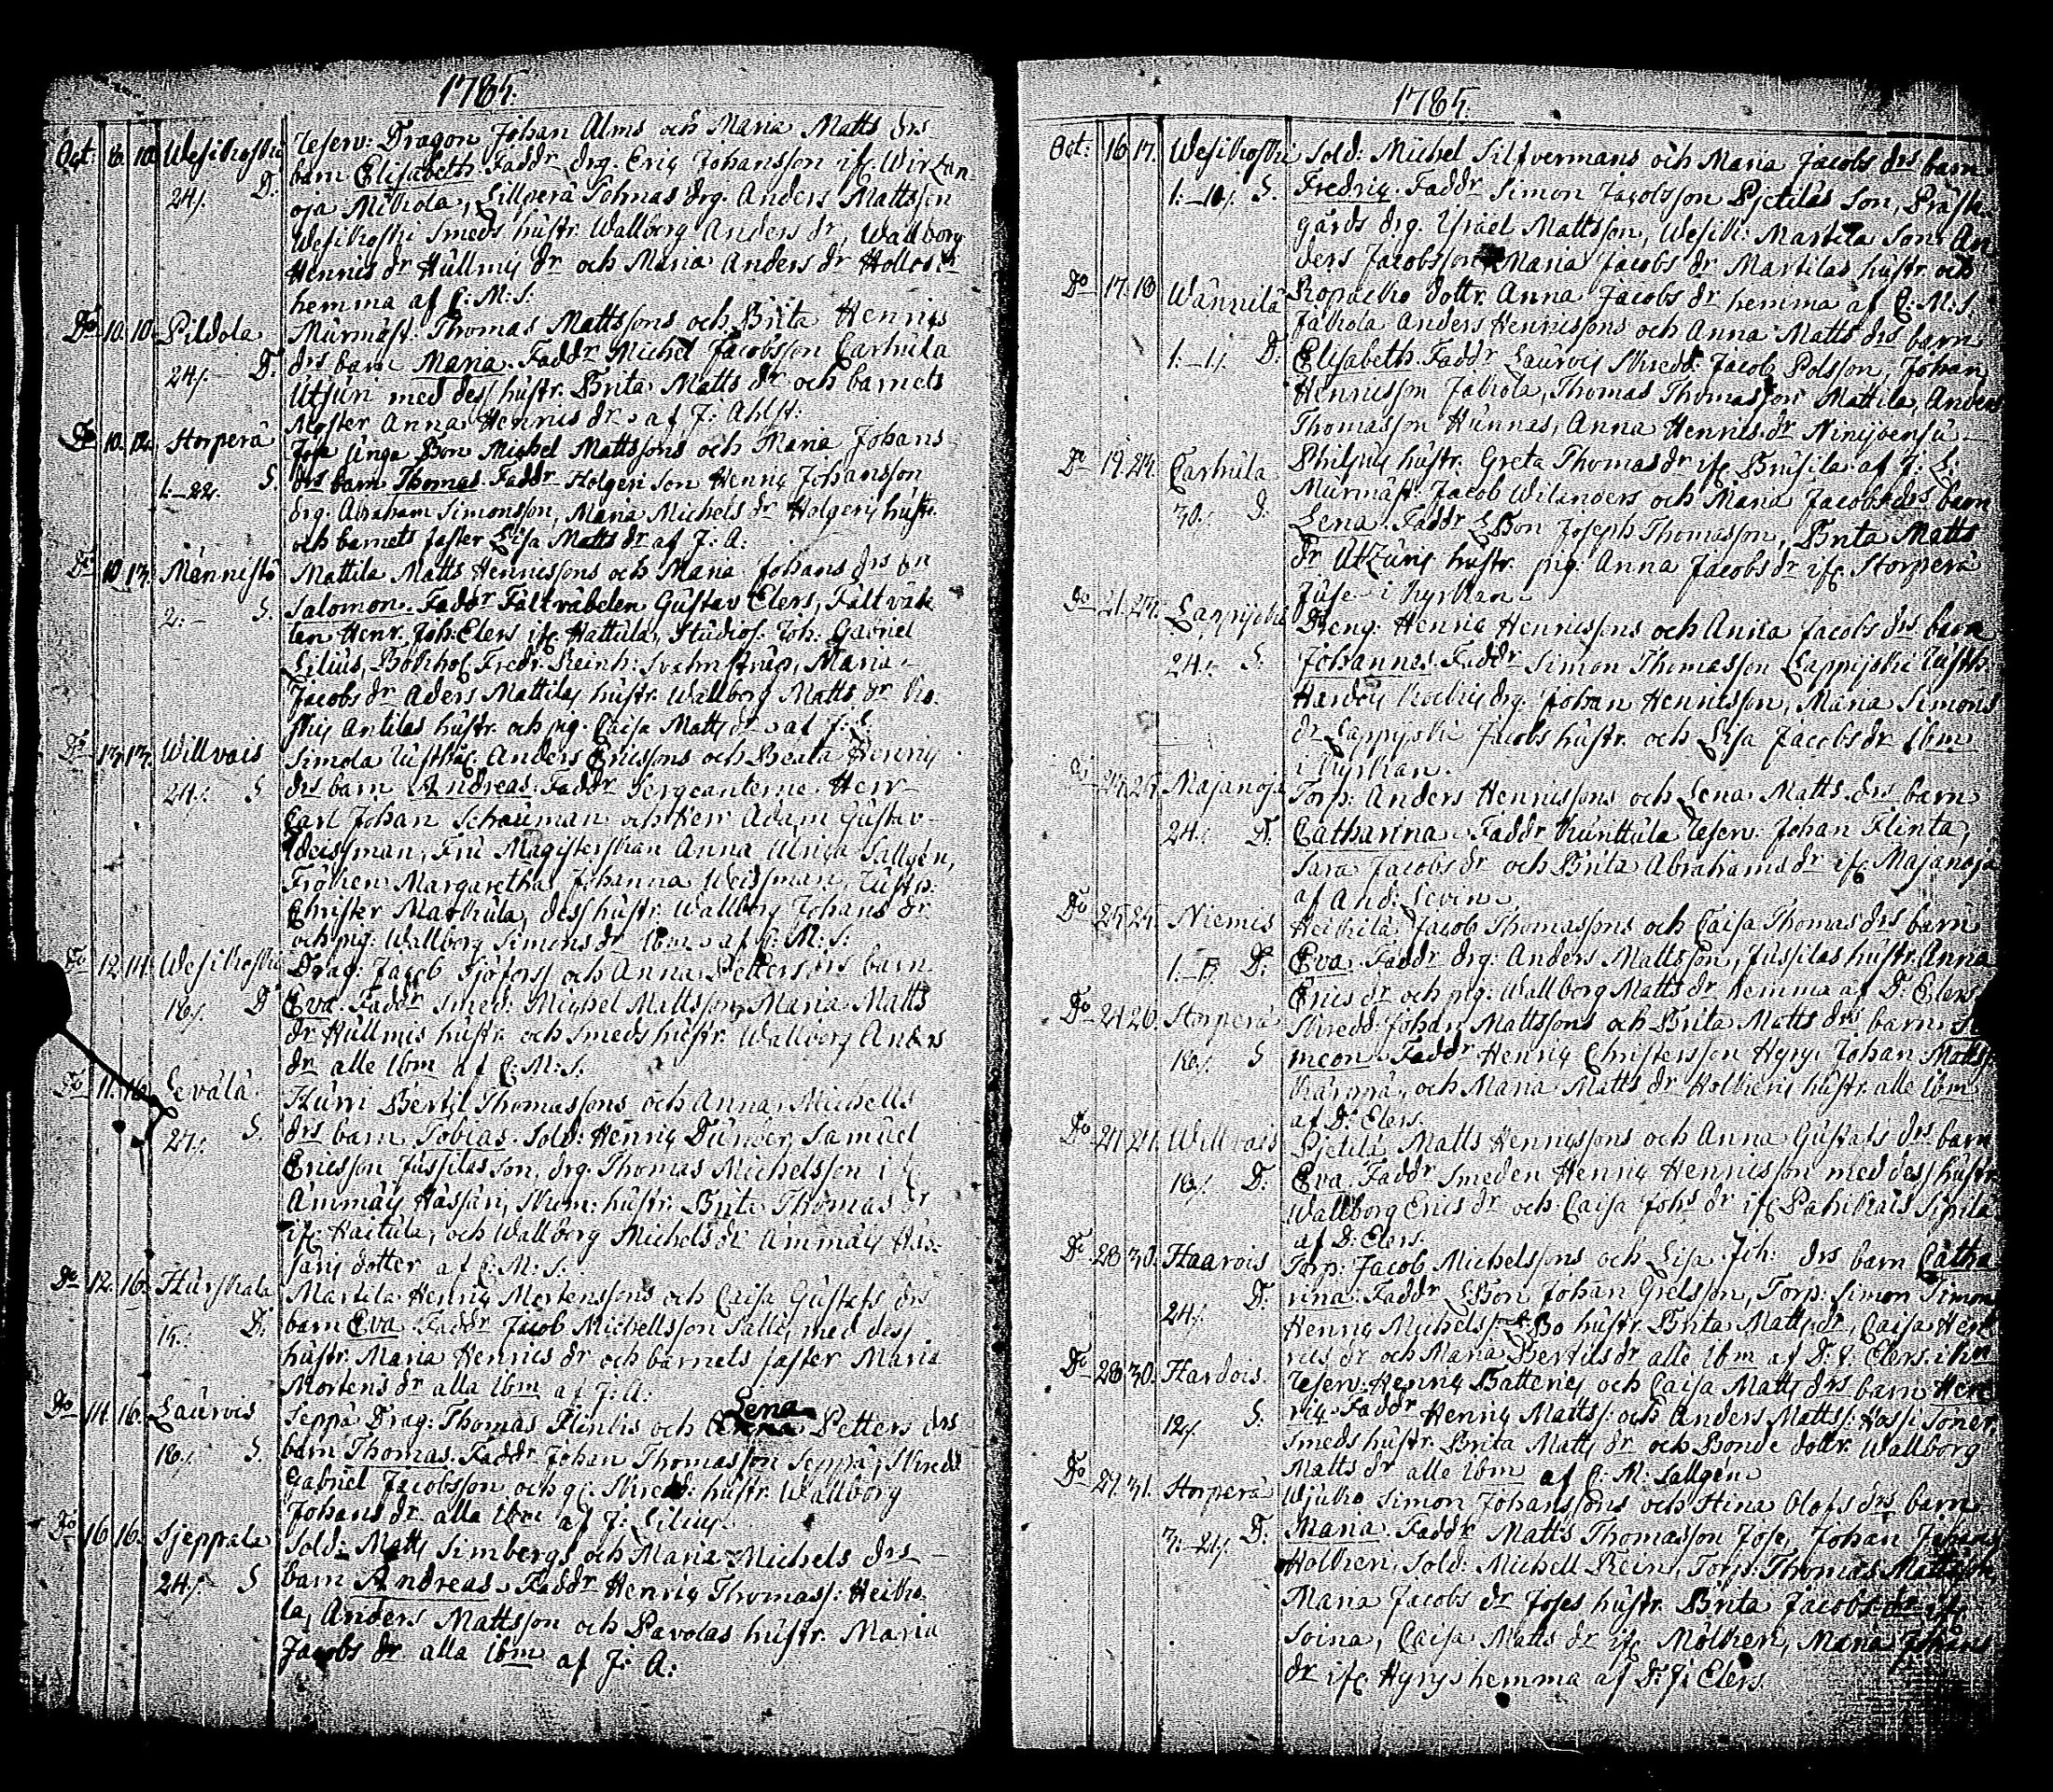 1785.
Oct: 8. 10. Wesikoski Reserv: Dragon Johan Alms och Maria Matts drs
barn Elisabeth. Faddr drg. Eriç Johansson ifr. Wirkan
24/. D. oja Mikola, Lillperä Tomas drg. Anders Mattsson
Wesikoski Smeds hustr. Wallborg Anders dr, Wallborg
Henrics dr Hullmis dr och Maria Anders dr
hemma af C: M: S:
Do 10. 10. Pildola Murmäst: Thomas Mattssons och Brita Henrics
24/. D. drs barn Maria. Faddr Michel Jacobsson Carhula
Utzuri med dess hustr. Brita Matts dr och barnets
Moster Anna Henrics dr. af J: Ahlst:
Do 10. 12. Storperä Jose unga Bon Michel Mattssons och Maria Johans
1.-22. S. drs barn Thomas. Faddr Holgeri Son Henriç Johansson
drg. Abraham Simonsson, Maria Michels dr Holgeris hustr.
och barnets faster Lisa Matts dr af J: A:
Do 10 13. Männistö Mattila Matts Henricssons och Maria Johans drs bn
2.- S. Salomon. Faddr Fältväbelen Gustav Elers, Fältväb
len Henr. Joh: Elers ifr. Hattula, Studios. Joh. Gabriel
Lilius, Bokhol. Fredr. Reinh: Svahnström, Maria
Jacobs dr Aders Mattilas hustr. Wallborg Matts dr Ko-
skis Antilas hustr. och pig. Caisa Matts dr. af J: L.
Do 13 13. Willvais Simola Rusth: Anders Ericssons och Beata Henriç
24/. S drs barn Andreas. Faddr Sergeanterne Herr
Carl Johan Schauman och Herr Adam Gustav
Weissman, Fru Magisterskan Anna Ulrica Sallgén,
Fröken Margaretha Johanna Weissman, Rusth:
Christer Markula, dess hustr. Wallborg Johans dr
och pig: Wallborg Simons dr ibm. af C: M: S:
Do 12 14. Wesikoski Drag: Jacob Sjöforss och Anna Petters drs barn
18/. D Eva. Faddr Smed. Michel Mattsson, Maria Matts
dr Hullmis hustr. och Smeds hustr. Wallborg Anders
dr alle ibm af C: M: S.
Do 11. 16. Levälä Hurri Bertil Thomassons och Anna Michells
27/. S. drs barn Tobias. Sold: Henriç Dunder, Samuel
Ericsson Jussilas son, drg. Thomas Michelsson i
Ammäs Hassan, hustr. Brita Thomas dr
ifr. Haitula, och Wallborg Michels dr Ammäs Has-
saris dotter af C: M: S:
Do 12. 16. Hurskala Martila Henriç Mortenssons och Caisa Gustafs drs
15/. D. barn Eva. Faddr Jacob Michellsson Salli, med dess
hustr. Maria Henrics dr och barnets faster Maria
Mortens dr alla ibm af J: A:
Do 14. 16. Laurois Seppä Drag: Thomas Flinkis och Lena Petters drs
18/. S barn Thomas. Faddr Johan Thomasson Seppä, Skredd
Gabriel Jacobsson och gl. Skredd: hustr. Wallborg
Johans dr alla ibm af J: Lilius.
Do 16 16. Sjeppala Sold: Matts Simbergs och Maria Michels drs
24/. S barn Andreas. Faddr Henriç Thomass: Heikko-
la, Anders Mattsson och Pavolas hustr. Maria
Jacobs dr alla ibm af J: A:
1785.
Oct: 16 17. Wesikoski Sold: Michel Silfvermans och Maria Jacobs drs barn
1.-10/. S. Fredriç. Faddr Simon Jacobsson Pjetilas Son, Präst-
gårds drg. Israel Mattsson, Wesik: Martila Son An
ders Jacobsson Maria Jacobs dr Martilas hustr. och
Ropacko dottr. Anna Jacobs dr hemma af C: M: S
Do 17. 18 Wännilä Jakola Anders Henricssons och Anna Matts drs barn
1.-1/. D. Elisabeth. Faddr Laurois Skredd. Jacob Polsson, Johan
Henricsson Jakola, Thomas Thomasson Mattila, Anders
Thomasson Hunnas, Anna Henrics dr
hustr. Greta Thomas dr ifr. Brusila af J: L:
Do 19. 24. Carhula Murmäst: Jacob Wilanders och Maria Jacobs drs barn
30/. D. Lena. Faddr L:Bon Joseph Thomasson, Brita Matts
dr Utzuris hustr. pig. Anna Jacobs dr ifr. Storperä
Juse i kyrkan.
Do 21. 24. Lappijoki Dreng: Henriç Henricssons och Anna Jacobs drs barn
24/. S. Johannes. Faddr Simon Thomasson Lappijoki Rusth:
drg. Johan Henricsson, Maria Simons
dr Lappijoki Jacobs hustr. och Lisa Jacobs dr ibm
i kyrkan.
24. 24. Majanoja Torp: Anders Henricssons och Lena Matts drs barn
24/. D. Catharina. Faddr Kunttula Reserv: Johan Flinta,
Sara Jacobs dr och Brita Abrahams dr ifr. Majanoja
af And: Levin.
Do 25 25. Niemis Heikkilä Jacob Thomassons och Caisa Thomas drs barn
D. Eva. Faddr drg. Anders Mattsson, Jussilas hustr. Anna
Erics dr och pig. Wallborg Matts dr hemma af D: Elers
Do 24 26. Storperä Skredd. Johan Mattssons och Brita Matts drs barn Si
18/. S meon. Faddr Henriç Christersson Hyry, Johan Matts
och Maria Matts dr Holkeris hustr. alle ibm
af D: Elers.
Do 27 27. Willvais Pjetilä Matts Henricssons och Anna Gustafs drs barn
18/. D. Eva. Faddr Smeden Henriç Henricsson med dess hustr.
Wallborg Erics dr och Caisa Johs dr ifr. Pahikkais Sipila
af D: Elers.
Do 28 30. Haarois Torp: Jacob Michelssons och Lisa Joh: drs barn Catha
24/. D. rina. Faddr L:Bon Johan Grelsson, Torp: Simon Simon
Henriç Michels hustr. Brita Matts dr, Caisa Hen
rics dr och Maria Bertils dr alle ibm af D. J: Elers.
Do 28 30. Hardois Reserv: Henriç Batteries och Caisa Matts drs barn Hen
12/. S. riç. Faddr Henriç Matts: och Anders Matts: Hossi söner,
Smeds hustr. Brita Matts dr och Bonde dottr. Wallborg
Matts dr alle ibm af C: M: Sallgén
Do 29. 31. Storperä Wjukko Simon Johanssons och Stina Olofs drs barn
3.-24/. D. Maria. Faddr Matts Thomasson Jose, Johan Johans
Holkeri, Sold: Michell Rein, Torp: Thomas Mattsson
Maria Jacobs dr Joses hustr. Brita Jacobs dr ifr.
Soina, Caisa Matts dr ifr. Mölkeri, Maria Johans
dr ifr. Hyrys hemma af D: J: Elers.